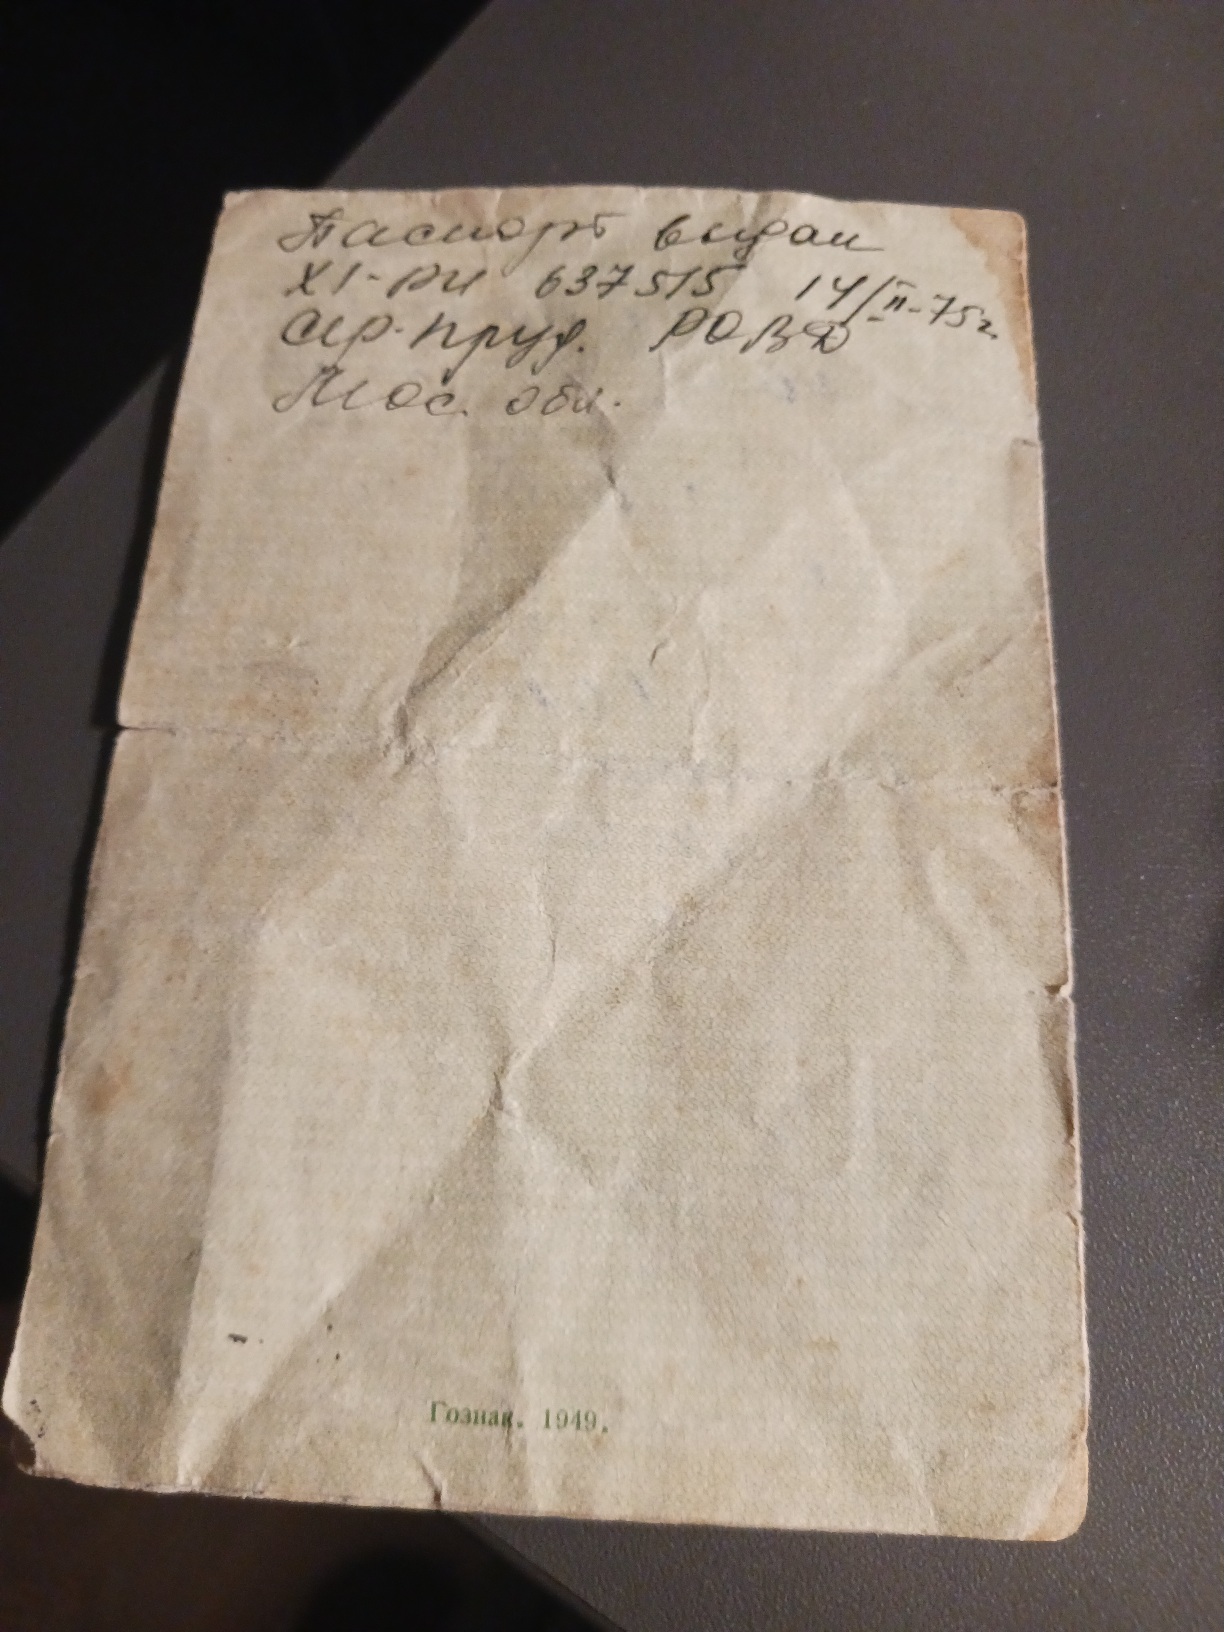 Паспорт выдан
XI-РИ 637515 14/II-75г.
Сер. Пруд. РОВД
Мос. обл.
Гознак. 1949.